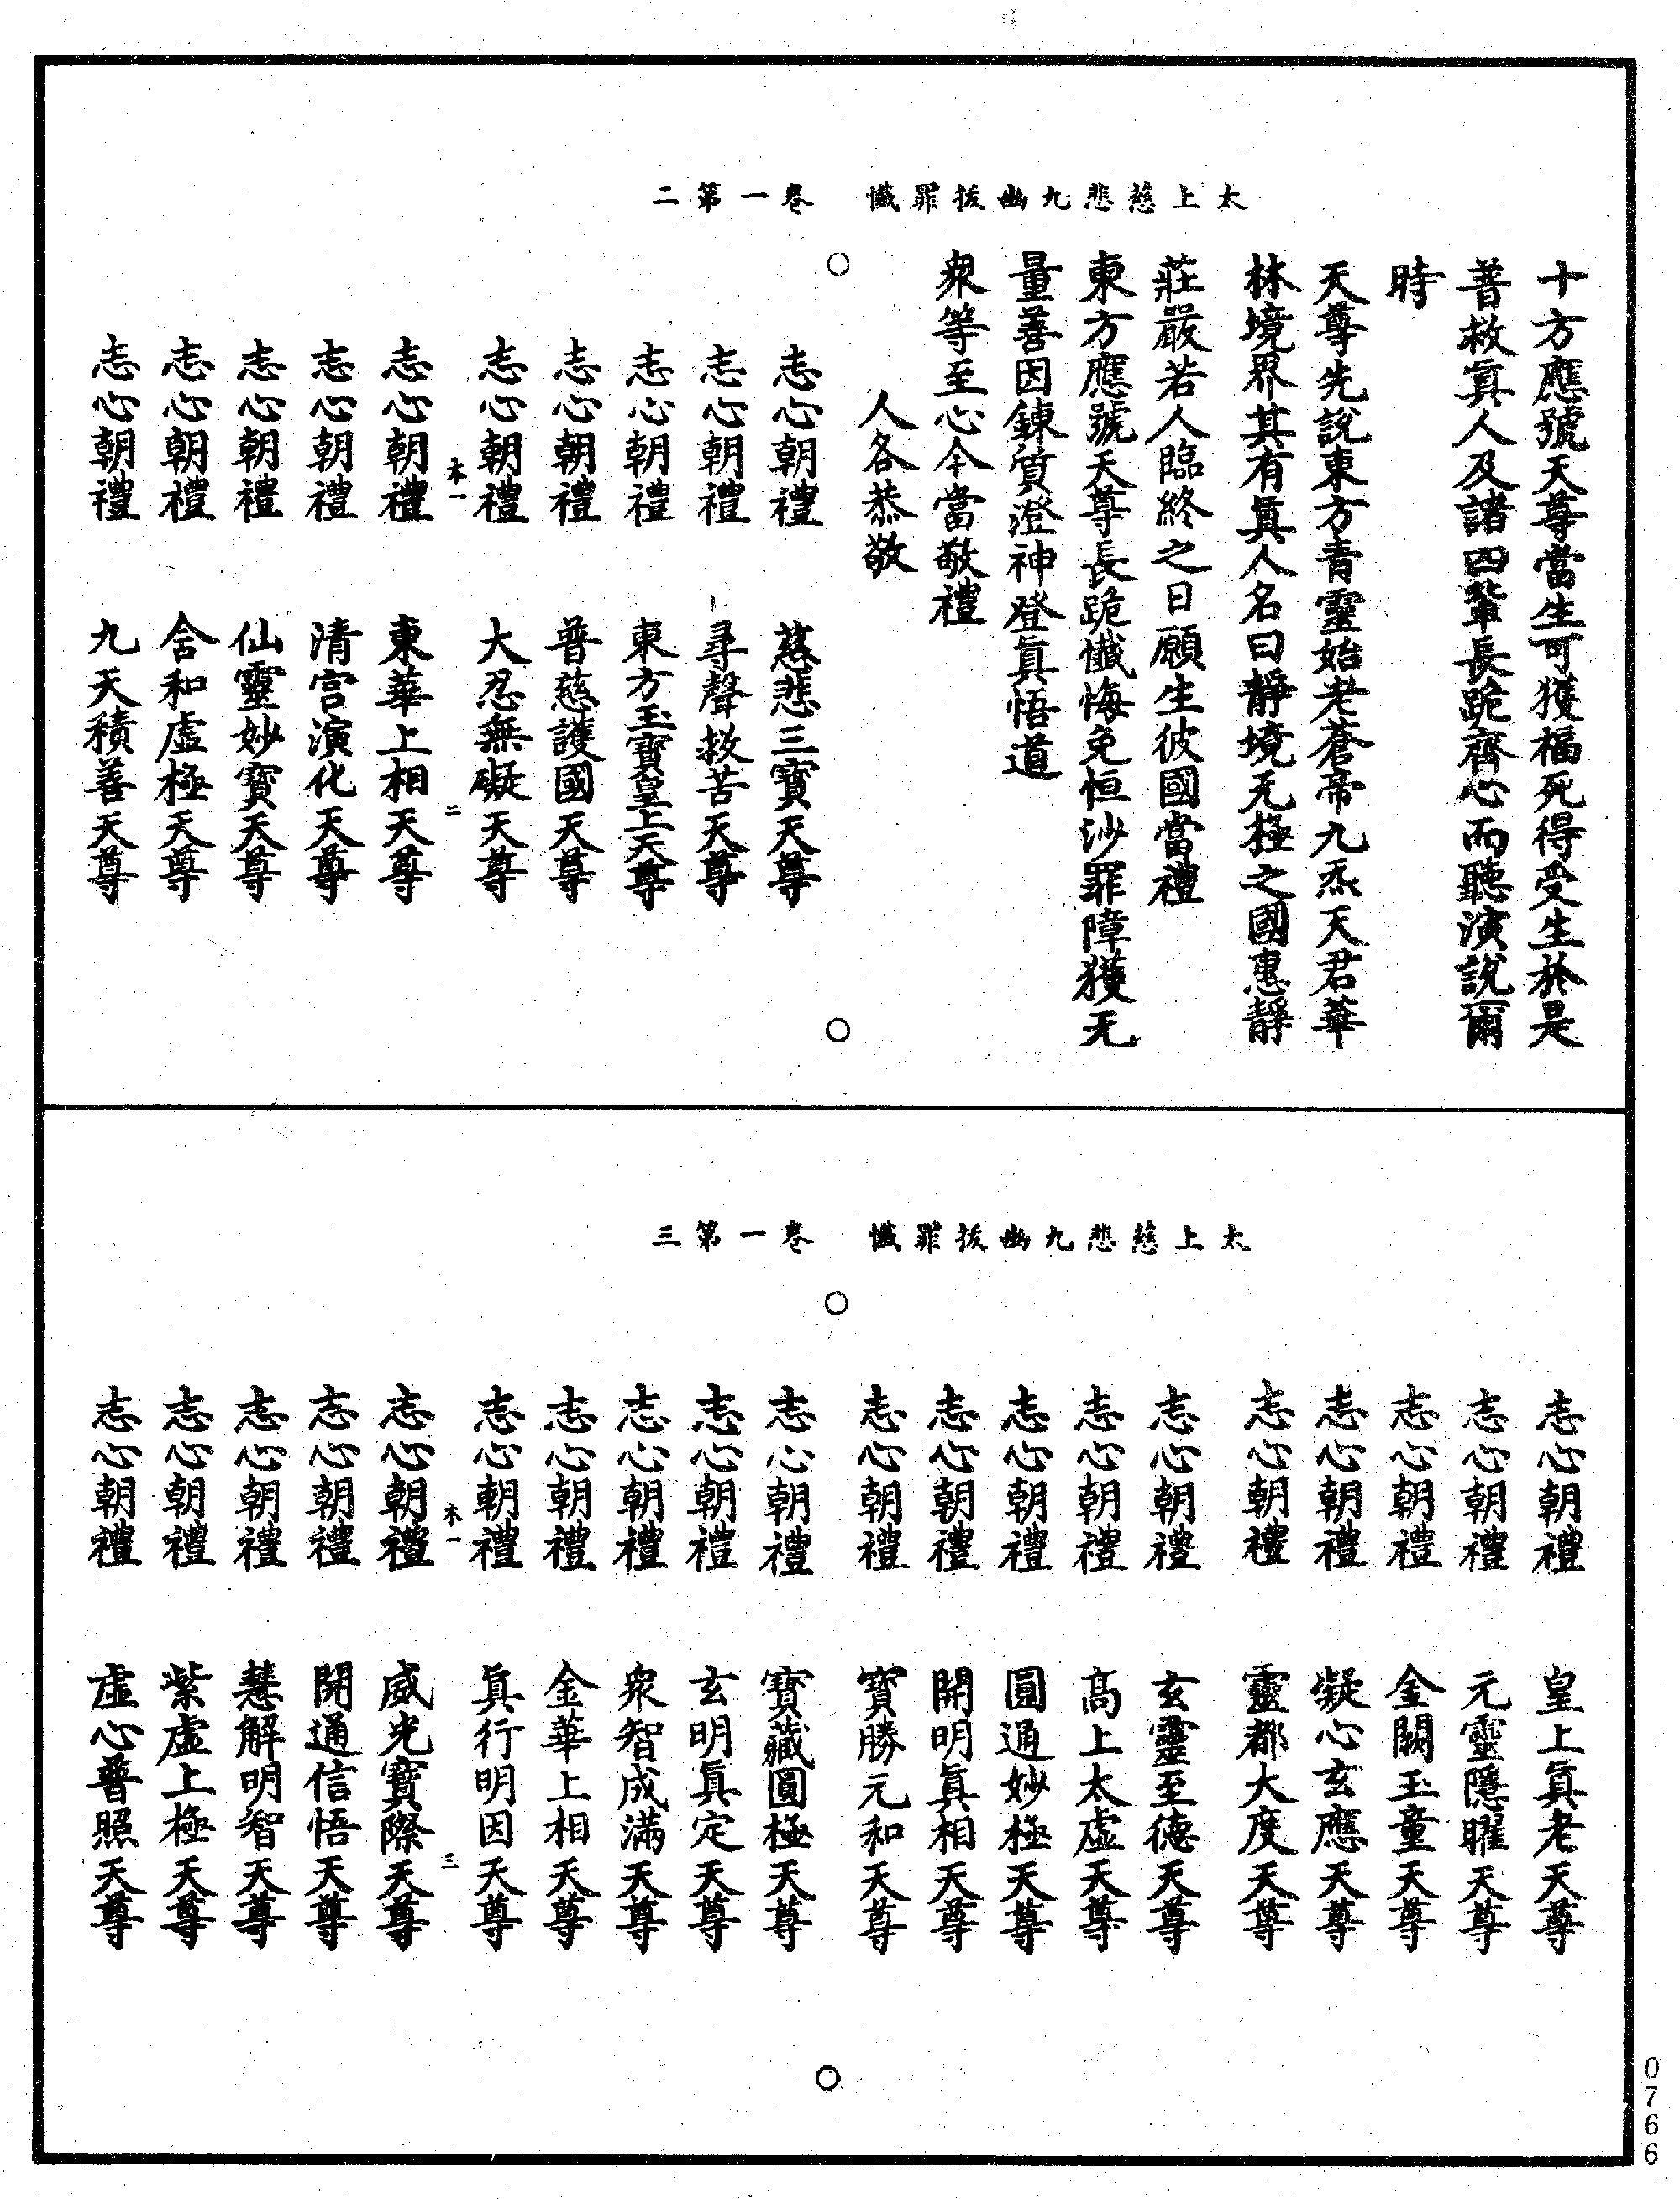 太上慈悲九幽拔罪懺　卷一第二
十方應號天尊當生可獲福死得受生於是
普救眞人及諸四輩長跪齊心而聽演說爾
時
天尊先說東方青靈始老蒼帝九炁天君華
林境界其有眞人名曰靜境无極之國惠靜
莊嚴若人臨終之日願生彼國當禮
東方應號天尊長跪懺悔免恒沙罪障獲无
量善因鍊質澄神登眞悟道
衆等至心今當敬禮
人各恭敬
志心朝禮　慈悲三寶天尊
志心朝禮　尋聲救苦天尊
志心朝禮　東方玉寶皇上天尊
志心朝禮　普慈護國天尊
志心朝禮　大忍無礙天尊
木一　二
志心朝禮　東華上相天尊
志心朝禮　清宮演化天尊
志心朝禮　仙靈妙寶天尊
志心朝禮　含和虛極天尊
志心朝禮　九天積善天尊
太上慈悲九幽拔罪懺　卷一第三
志心朝禮　皇上眞老天尊
志心朝禮　元靈隱曜天尊
志心朝禮　金闕玉童天尊
志心朝禮　凝心玄應天尊
志心朝禮　靈都大度天尊
志心朝禮　玄靈至德天尊
志心朝禮　高上太虛天尊
志心朝禮　圓通妙極天尊
志心朝禮　開明眞相天尊
志心朝禮　寶勝元和天尊
志心朝禮　寶藏圓極天尊
志心朝禮　玄明眞定天尊
志心朝禮　衆智成滿天尊
志心朝禮　金華上相天尊
志心朝禮　眞行明因天尊
木一　三
志心朝禮　威光寶際天尊
志心朝禮　開通信悟天尊
志心朝禮　慧解明智天尊
志心朝禮　紫虛上極天尊
志心朝禮　虛心普照天尊
0766